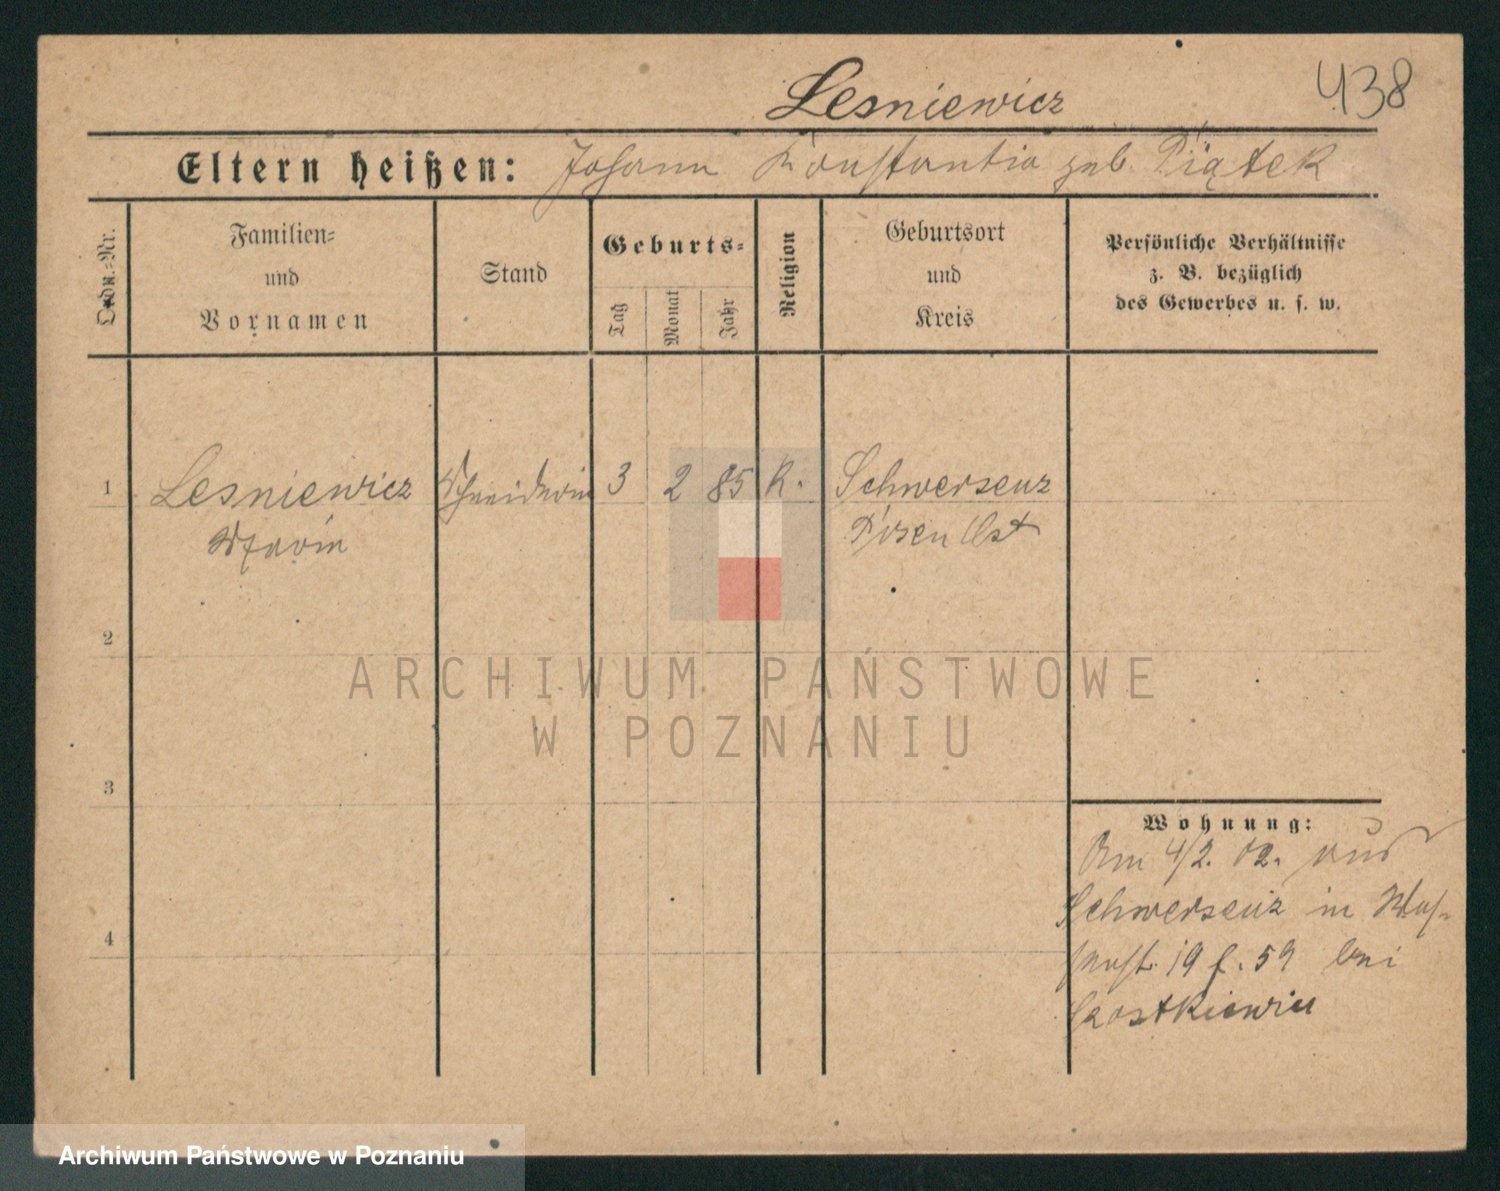 Lesniewicz
438
Eltern heißen: Johann Konstantia geb. Piątek
Ordn.-Nr.
Familien-
und
Vornamen
Stand
Geburts-
Tag
Monat
Jahr
Religion
Geburtsort
und
Kreis
Persönliche Verhältnisse
z. B. bezüglich
des Gewerbes u. s. w.
1 Lesniewicz Schneiderin 3 2 85 K. Schwersenz
Maria Posen Ost
2
3
4
Wohnung:
Am 4/2. 02. aus
Schwersenz in
19 f. 59 bei
ARCHIWUM PAŃSTWOWE
W POZNANIU
Archiwum Państwowe w Poznaniu